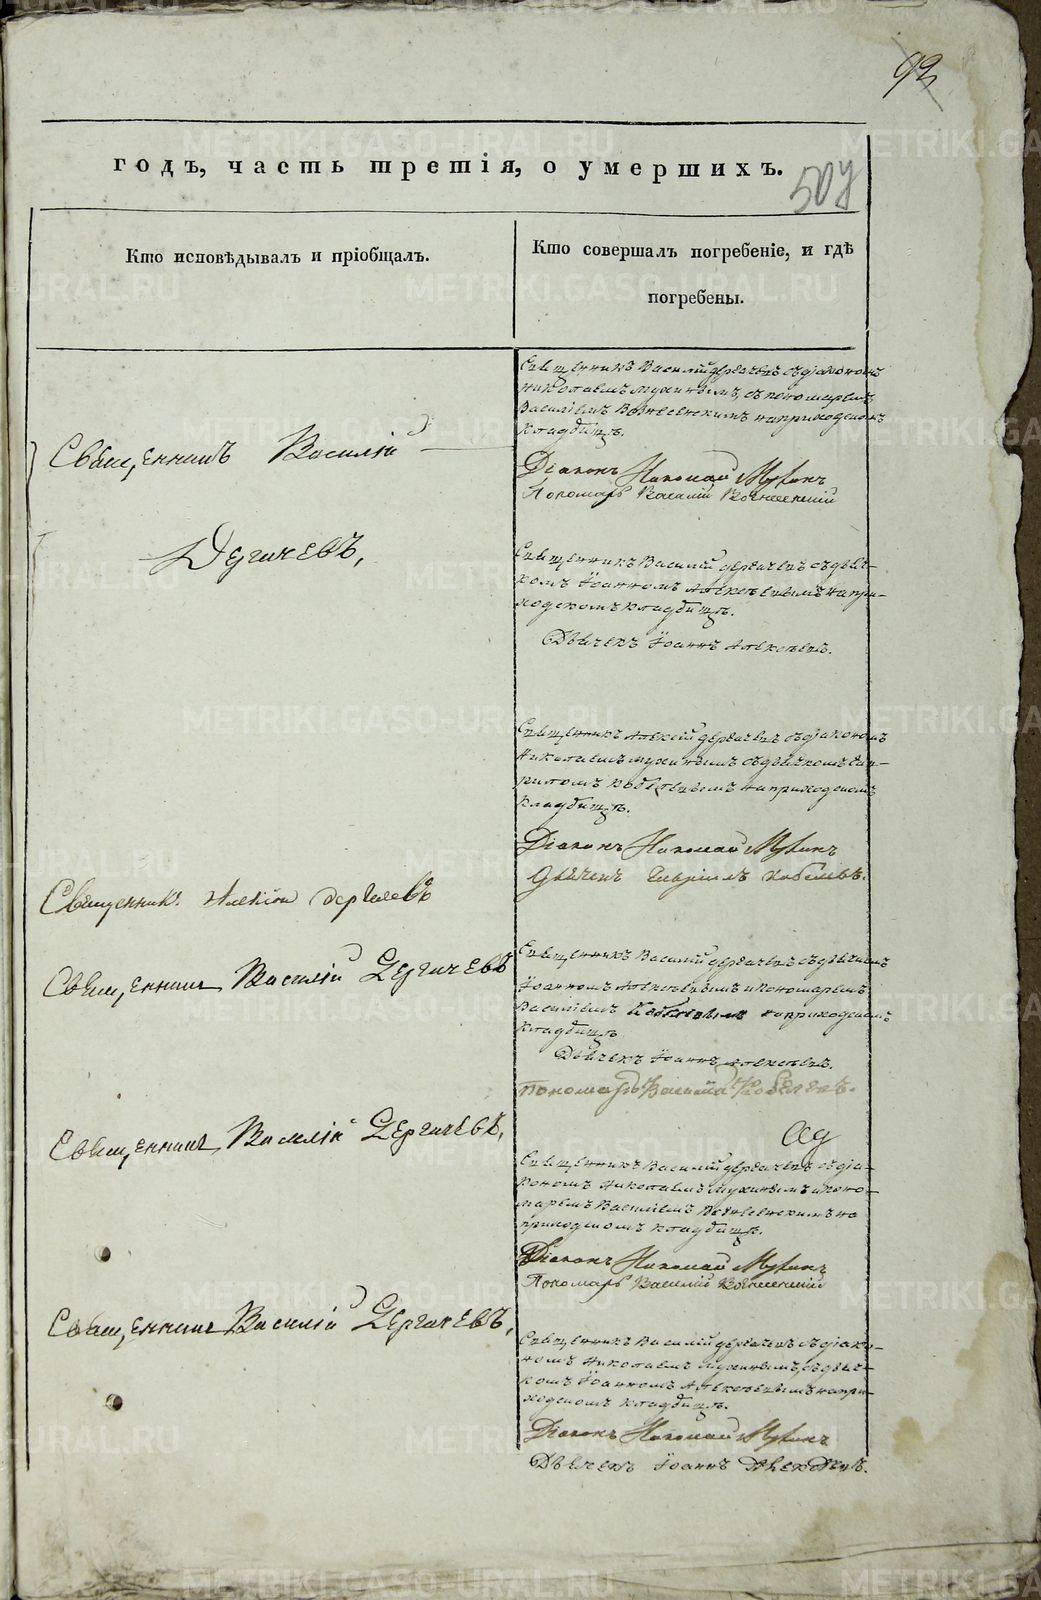 93
годъ, часть третія, о умершихъ.
507
Кто исповѣдывалъ и пріобщалъ.
Кто совершалъ погребеніе, и гдѣ
погребены.
Священникъ Василій Дергачевъ съ діакономъ
Николаемъ Мухинымъ, съ пономаремъ
Василіемъ Вознесенскимъ на приходскомъ
кладбищѣ.
Священникъ Василій
Діаконъ Николай Мухинъ
Пономарь Василій Вознесенскій
Дергачевъ,
Священникъ Василій Дергачевъ съ дьяч-
комъ Іоанномъ Алексѣевымъ на при-
ходскомъ кладбищѣ.
Дьячекъ Іоаннъ Алексѣевъ.
Священникъ Алексѣй Дергачевъ съ діакономъ
Николаемъ Мухинымъ съ дьячкомъ Гав-
ріиломъ Кобелевымъ на приходскомъ
кладбищѣ.
Діаконъ Николай Мухинъ
Дьячекъ Гавріилъ Кобелевъ.
Священникъ Алексій Дергачевъ
Священникъ Василій Дергачевъ
Священникъ Василій Дергачевъ съ дьячкомъ
Іоанномъ Алексѣевымъ и пономаремъ
Василіемъ Кобелевымъ на приходскомъ
кладбищѣ
Дьячекъ Іоаннъ Алексѣевъ.
Пономарь Василій Кобелевъ.
Священникъ Василій Дергачевъ,
Священникъ Василій Дергачевъ съ діа-
кономъ Николаемъ Мухинымъ и поно-
маремъ Василіемъ Вознесенскимъ на
приходскомъ кладбищѣ.
Діаконъ Николай Мухинъ
Пономарь Василій Вознесенскій
Священникъ Василій Дергачевъ,
Священникъ Василій Дергачевъ съ діако-
номъ Николаемъ Мухинымъ, съ дьяч-
комъ Іоанномъ Алексѣевымъ на при-
ходскомъ кладбищѣ.
Діаконъ Николай Мухинъ
Дьячекъ Іоаннъ Алексѣевъ.
METRIKI.GASO-URAL.RU